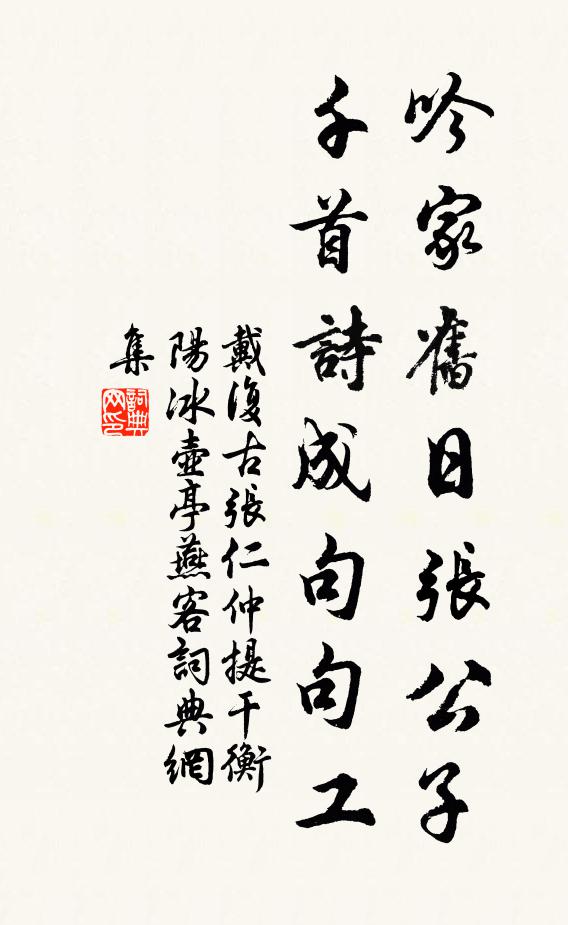 吟家舊日張公子
千首詩成句句工
戴復古張仁仲提干衡
陽冰壺亭燕客詞典網
集
詞典
网印